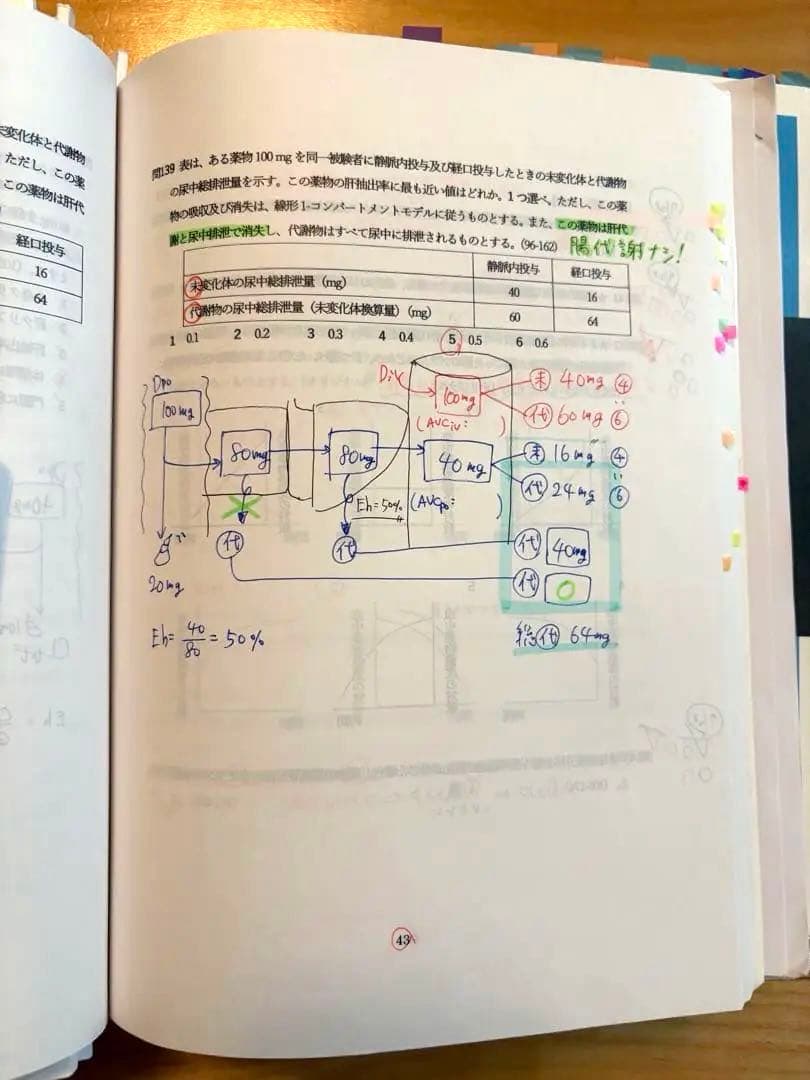 未変化体と代謝物
ただし、この薬
この薬物は肝代
経口投与
16
64
問139 表は、ある薬物100 mg を同一被験者に静脈内投与及び経口投与したときの未変化体と代謝物
の尿中総排泄量を示す。この薬物の肝抽出率に最も近い値はどれか。1つ選べ。ただし、この薬
物の吸収及び消失は、線形1-コンパートメントモデルに従うものとする。また、この薬物は肝代
謝と尿中排泄で消失し、代謝物はすべて尿中に排泄されるものとする。(96-162) 腸代謝ナシ!
静脈内投与 経口投与
未変化体の尿中総排泄量(mg) 40 16
代謝物の尿中総排泄量(未変化体換算量)(mg) 60 64
1 0.1 2 0.2 3 0.3 4 0.4 5 0.5 6 0.6
Div 100mg 未 40mg ④
代 60mg ⑥
(AUCiv: )
Dpo
100mg
80mg 80mg 40mg 未 16mg ④
代 24mg ⑥
Eh=50% (AUCpo: )
代 代 代 40mg
代 0
20mg
Eh= 40/80 = 50%
総代 64mg
43